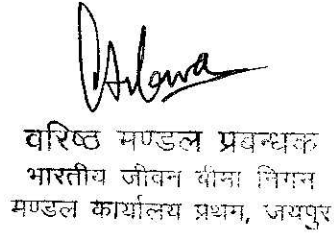 वरिष्ठ मण्डल प्रबन्धक
भारतीय जीवन बीमा निगम
मण्डल कार्यालय प्रथम, जयपुर